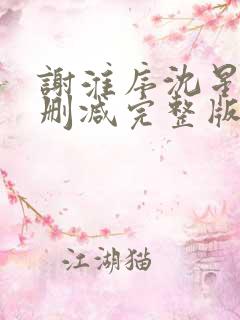 謝淮序沈星
刪减完整版
江湖猫